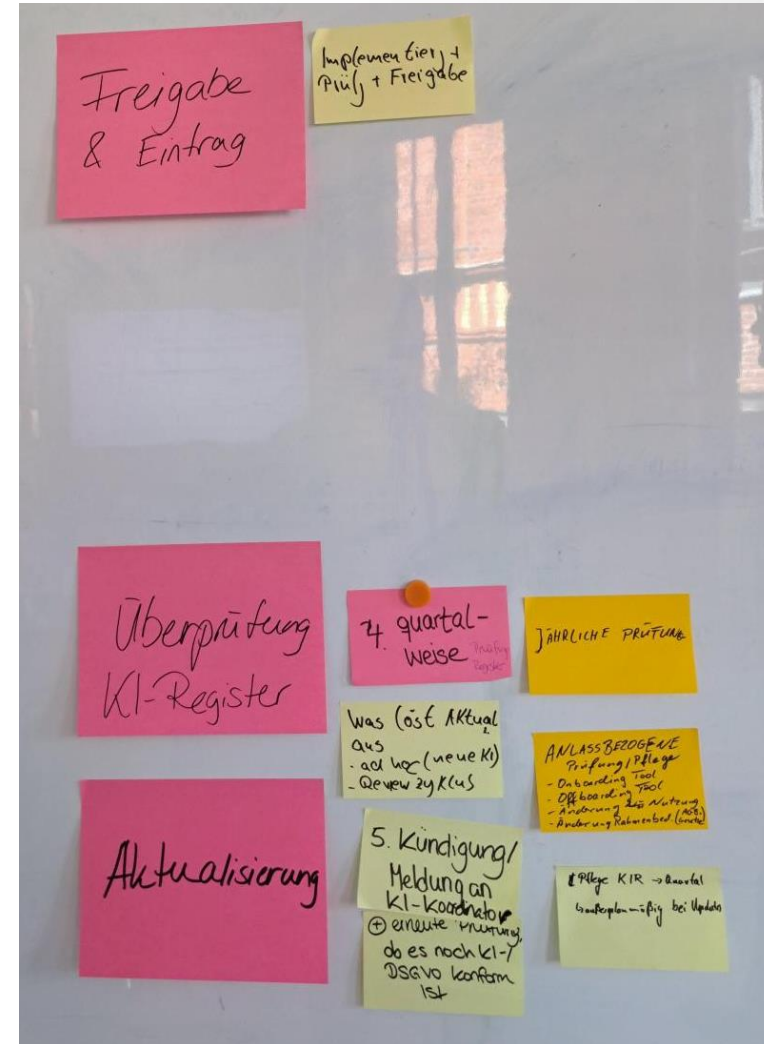 Freigabe
& Eintrag
Implementierg +
Prüfg + Freigabe
Überprüfung
KI-Register
4. quartal-
weise
Prüfung
Register
JÄHRLICHE PRÜFUNG
Was löst Aktual.
aus
- ad hoc (neue KI)
- Review zyklus
ANLASSBEZOGENE
Prüfung/Pflege
- Onboarding Tool
- Offboarding Tool
- Änderung Nutzung
- Änderung Rahmenbed. (AGB,
Aktualisierung
5. Kündigung/
Meldung an
KI-Koordinator
+ erneute Prüfung,
ob es noch KI-/
DSGVO konform
ist
Pflege KIR → Quartal
außerplanmäßig bei Updates